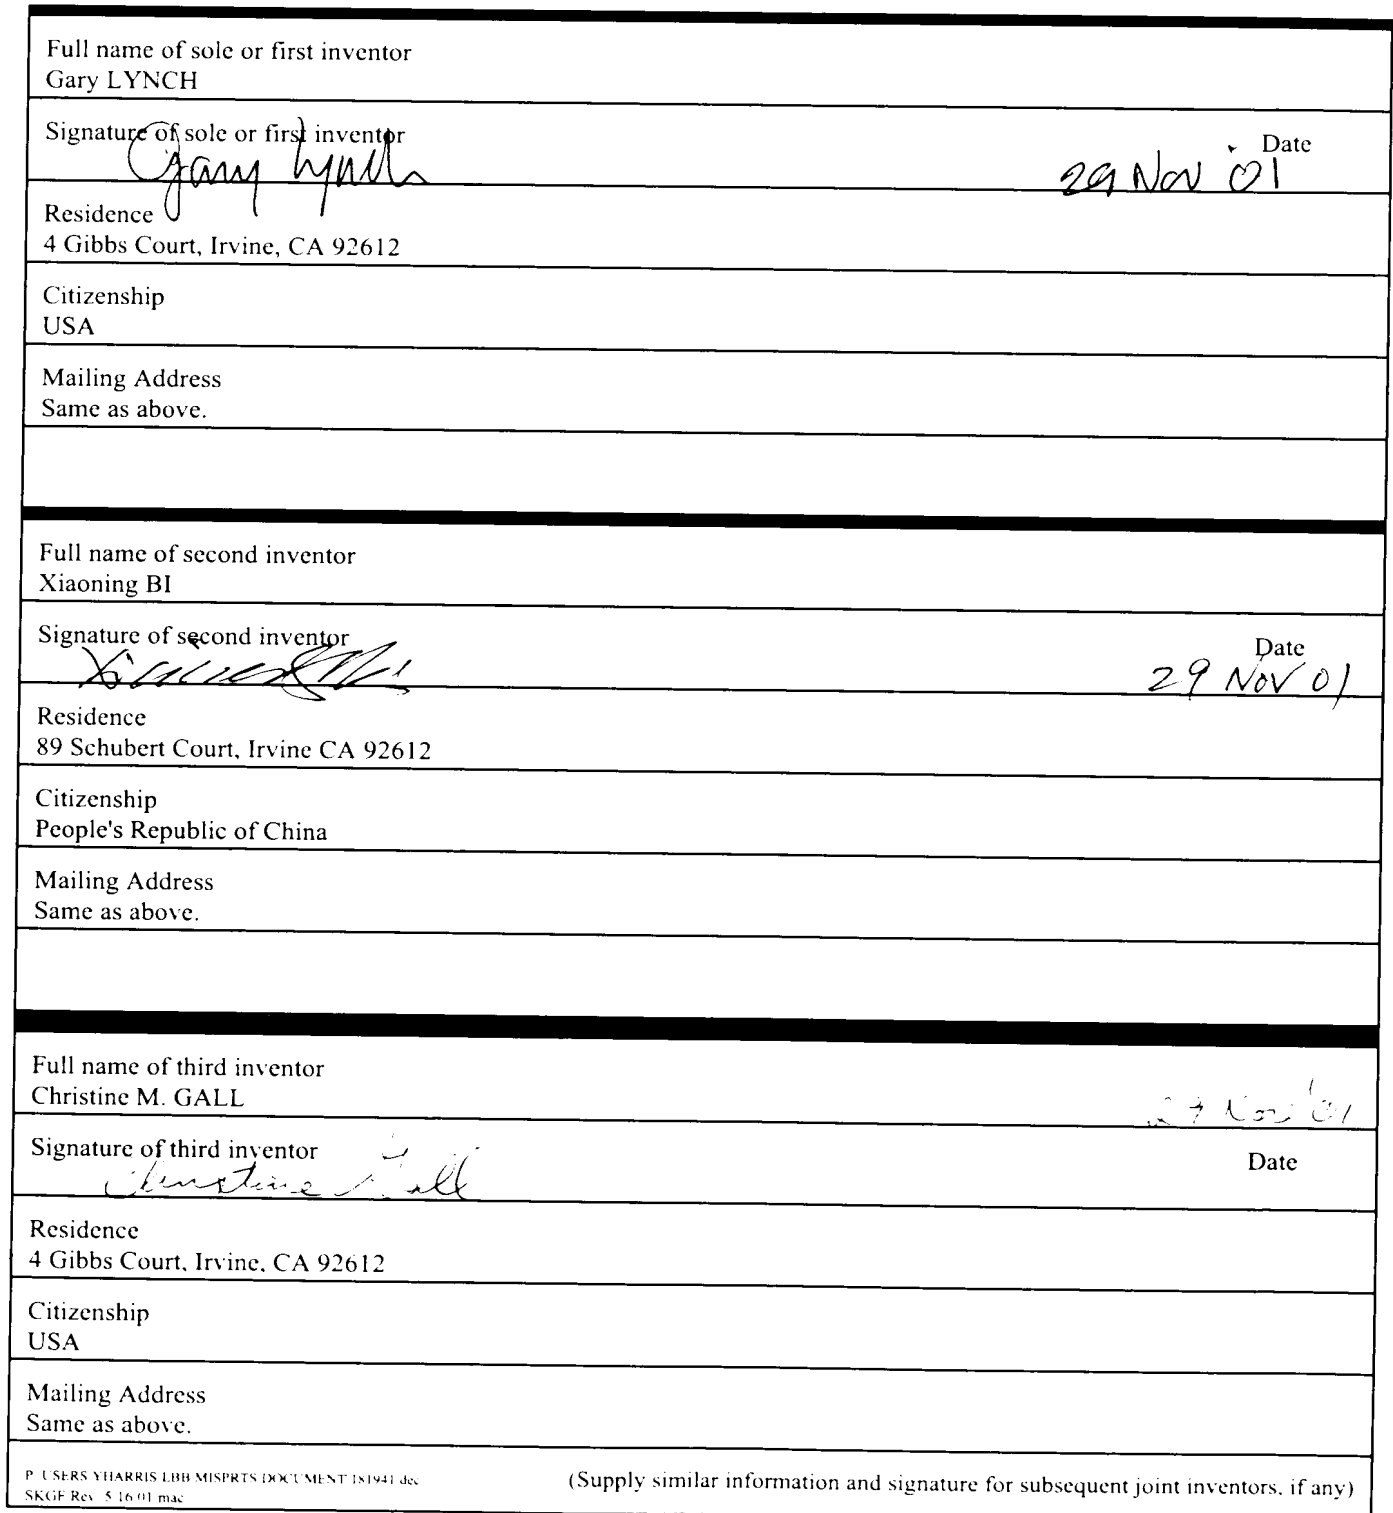 Full name of sole or first inventor
Gary LYNCH
Signature of sole or first inventor Date
Gary Lynch 29 Nov '01
Residence
4 Gibbs Court, Irvine, CA 92612
Citizenship
USA
Mailing Address
Same as above.
Full name of second inventor
Xiaoning BI
Signature of second inventor Date
29 Nov 01
Residence
89 Schubert Court, Irvine CA 92612
Citizenship
People's Republic of China
Mailing Address
Same as above.
Full name of third inventor
Christine M. GALL
Nov '01
Signature of third inventor Date
Christine Gall
Residence
4 Gibbs Court, Irvine, CA 92612
Citizenship
USA
Mailing Address
Same as above.
P USERS YHARRIS LBB MISPRTS DOCUMENT 181941 dec
SKGF Rev 5 16 01 mac
(Supply similar information and signature for subsequent joint inventors, if any)